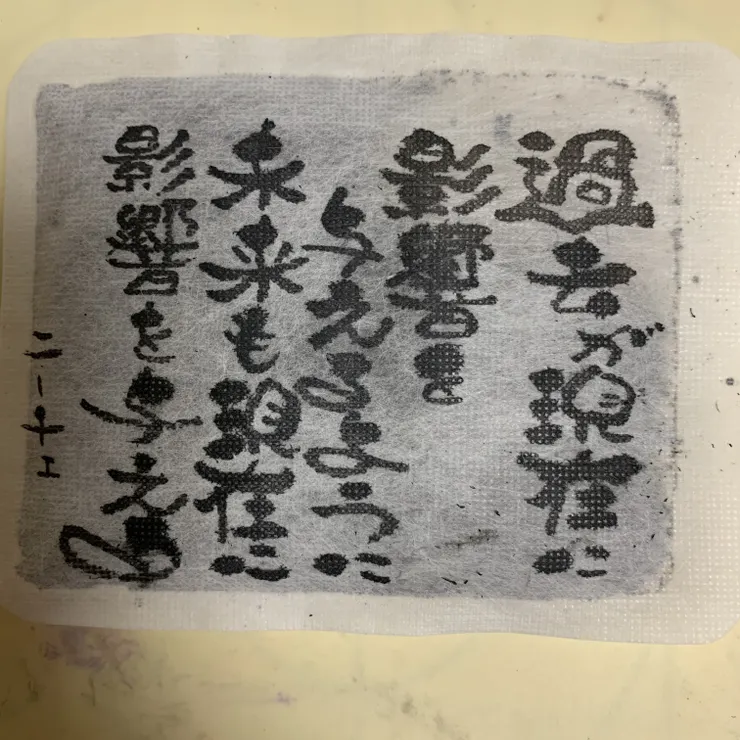 過去が現在に
影響を
与えるように
未来も現在に
影響を与える
ニーチェ